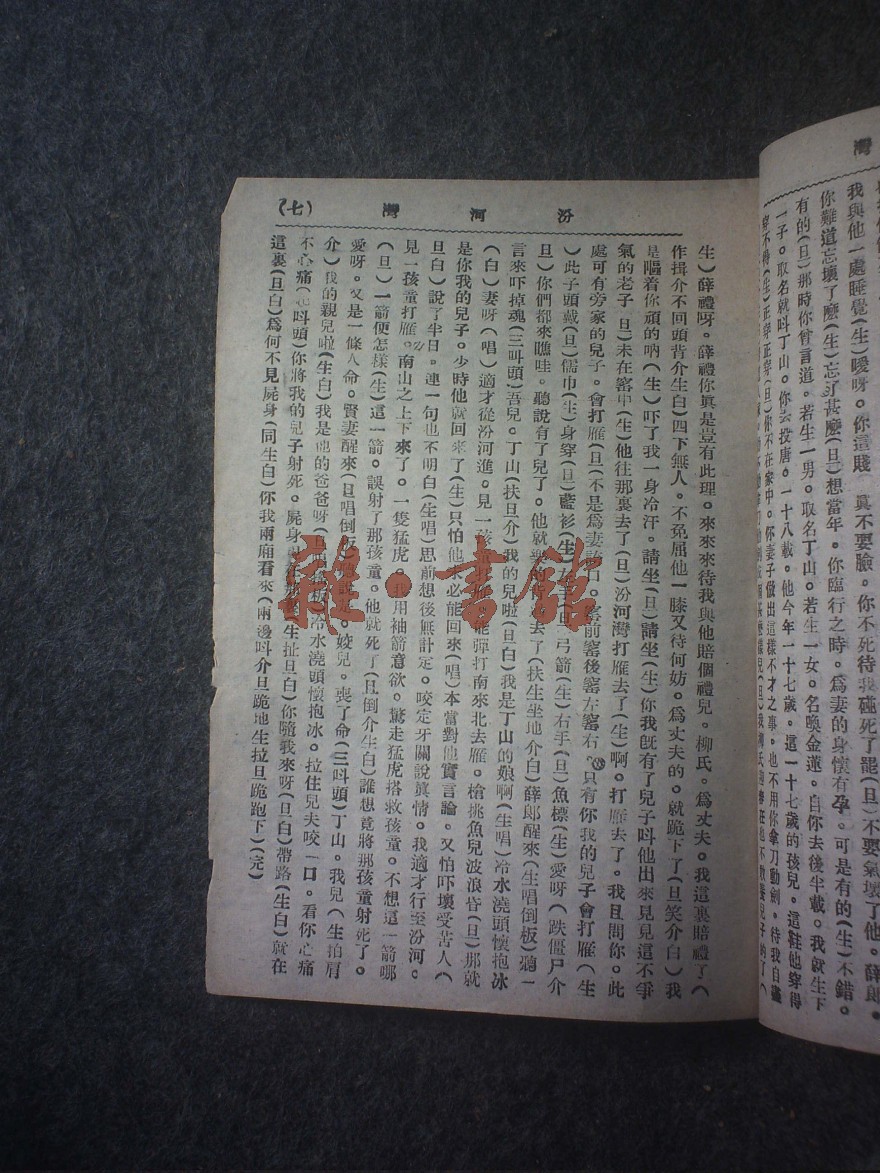 灣
我與他一處睡覺(生)噯呀。你這賤 眞不要臉。你不死待我碰死了罷(旦)不要氣壞了他。薛郎。
你難道忘壞了麽(生)忘了甚麽(旦)想當年。你臨行之時。爲妻的身懷有孕。可是有的(生)不錯。
有的(旦)那時你曾言道。若生一男。取名丁山。若生一女。名喚金蓮。自你去後半載。我就生下
一子。取名就叫丁山。你去投唐。一十八載。他今年一十七歲。這一十七歲的孩兒。這鞋他穿得
穿不得(生)正穿正穿(旦)你不在家中。你妻子做出這樣不才之事。也不用你拿刀動劍。待我自碰
汾河灣
(七)
生)薛禮呀。薛禮你眞是豈有此理。來來來待我與他賠個禮兒。柳氏。爲丈夫。我這裏賠禮了(
作揖介不回頭背介生白)四下無人。不免屈他一膝又待何妨。爲丈夫的。就跪下了(旦笑介白)我
是嘔着你頑的吶(生)吓了我一身冷汗。請坐(旦)請坐(生)你我旣有了兒子叫他出來見見這不爭
氣的老子 旦)未在窰中(生)他往那裏去了(旦)汾河灣打雁去了(生)啊。打雁去了。我且問你。此
處可有旁家的兒子。會打雁(旦)不是爲妻誇口。窰前窰後窰左窰右。只有你我的兒子會打雁(生
)此子頭戴(旦)儒巾(生)身穿(旦)藍衫(生)左手(旦)弓箭(生)右手(旦)魚標(生)愛呀(跌僵尸介
旦)你們都來瞧哇。聽說有了兒了。他就 的 去了(扶生坐地介白)薛郎醒來(生唱倒板)聽一
言來吓掉魂(三叫頭)吾兒。丁山(扶旦介)我的兒啦(旦白)我是丁山的娘啊(生唱)冷水澆頭懷抱冰
(白)妻呀(唱)適才從汾河進。見一孩童打 能彈打南來北去雁。槍挑魚兒波浪昏(旦)那就
是你我的兒子。少時他就回來了(生)只怕他未必能回來(唱)本當對他實言論。又怕吓壞受苦人(
旦白)說了半日。連一句也不明白(生唱)思前想後無計定。咬定牙關說眞情。我適才行至汾河。
見一孩童打雁。南山之上下來了。一隻猛虎。我用袖箭意欲。驚走猛虎搭救孩童。不想這一箭哪
(旦)一箭便怎樣(生)這一箭。誤射了那孩童。他就死了(旦倒介生白)誰想竟將那孩童射死了。
愛呀。又是一條人命。賢妻醒來(旦唱倒板)聽說是。姣兒。喪了命(三叫頭)丁山。我兒(生拍肩
介)我的親兒啦(生白)我是他的爸爸呀(旦唱 板)冷水澆頭懷抱冰。拉住兒夫咬一口。看你心痛
不心痛( 叫頭)你將我的兒子射死。屍身 在那 生扯旦白)你隨我來呀(旦白)帶路(生白)就在
這裏(旦白)爲何不見屍身(同生白)你我兩廂看來(兩邊叫介旦跪地生拉旦跪跑下)(完)
雜·書館